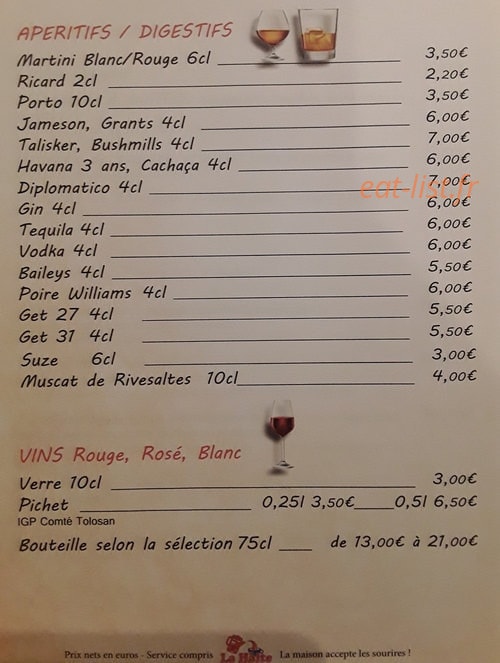 APERITIFS / DIGESTIFS
Martini Blanc/Rouge 6cl 3,50€
Ricard 2cl 2,20€
Porto 10cl 3,50€
Jameson, Grants 4cl 6,00€
Talisker, Bushmills 4cl 7,00€
Havana 3 ans, Cachaça 4cl 6,00€
Diplomatico 4cl 7,00€
eat-list.fr
Gin 4cl 6,00€
Tequila 4cl 6,00€
Vodka 4cl 6,00€
Baileys 4cl 5,50€
Poire Williams 4cl 6,00€
Get 27 4cl 5,50€
Get 31 4cl 5,50€
Suze 6cl 3,00€
Muscat de Rivesaltes 10cl 4,00€
VINS Rouge, Rosé, Blanc
Verre 10cl 3,00€
Pichet 0,25l 3,50€ 0,5l 6,50€
IGP Comté Tolosan
Bouteille selon la sélection 75cl de 13,00€ à 21,00€
Prix nets en euros - Service compris La Halte La maison accepte les sourires !